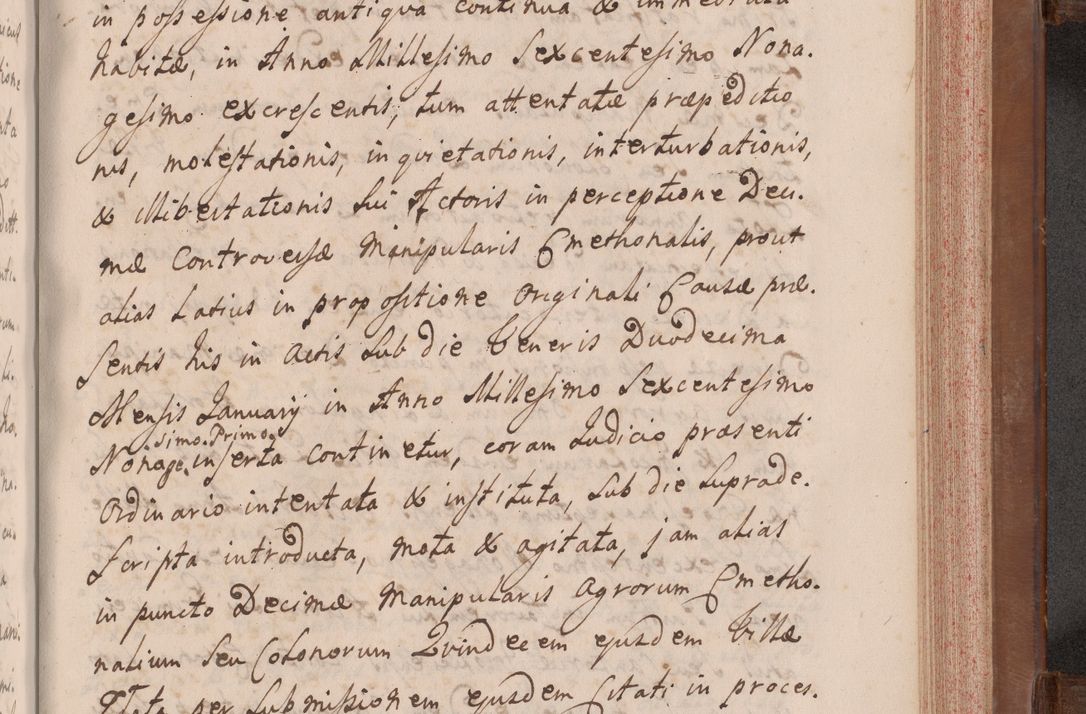 in possessione antiqua continua & immediata
habitæ, in Anno Millesimo Sexcentesimo Nona.
gesimo excrescentis, tum attentatæ præpeditio
nis, molestationis, inquietationis, interturbationis,
& illibertationis sui Actoris in perceptione Deci.
mæ Controversæ Manipularis Cmethonalis, prout
alias Latius in propositione Originali Causæ præ.
sentis his in Actis Sub die Veneris Duodecima
Mensis January in Anno Millesimo Sexcentesimo
simo. Primo.
Nonage. inserta continetur, coram Judicio præsenti
Ordinario intentata & instituta, Sub die Suprade.
Scripta introducta, mota & agitata, jam alias
in puncto Decimæ Manipularis Agrorum Cmetho.
nalium Seu Colonorum Quindecem ejusdem Villæ
per Submissionem ejusdem Citati in proces.